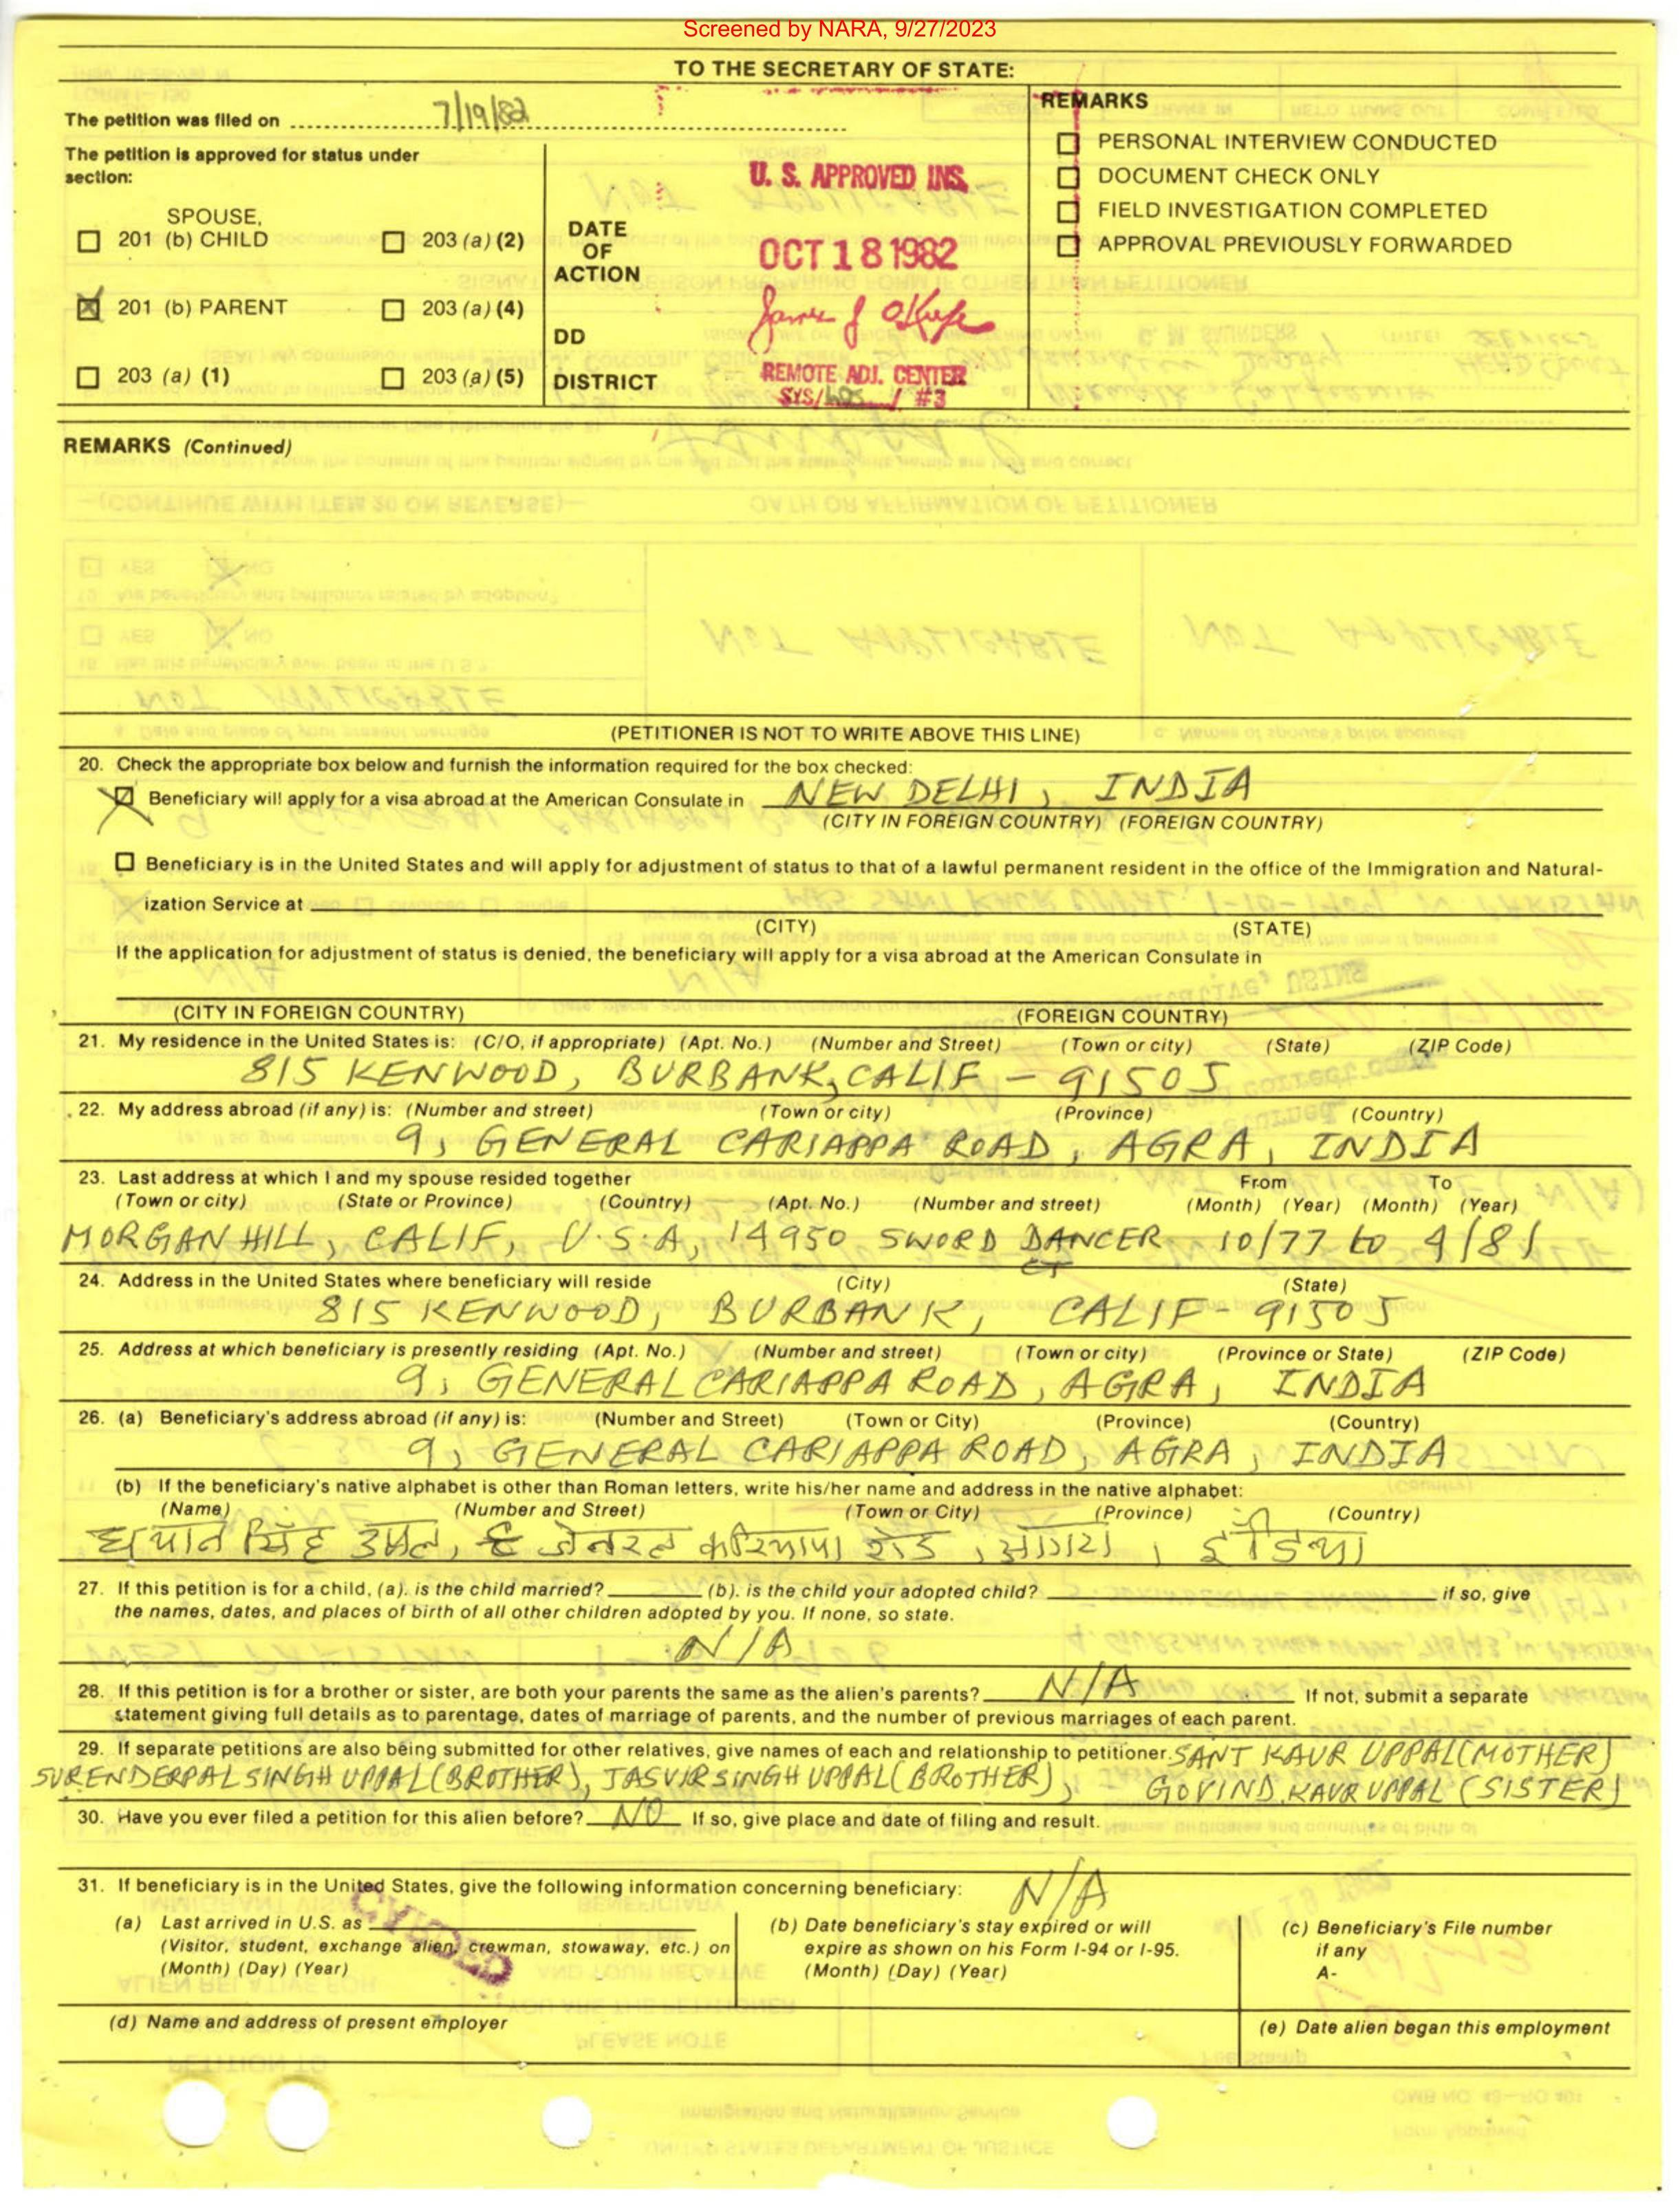 Screened by NARA, 9/27/2023
TO THE SECRETARY OF STATE:
The petition was filed on 7/19/82
The petition is approved for status under
section:
SPOUSE,
201 (b) CHILD
203 (a) (2)
201 (b) PARENT
203 (a) (4)
203 (a) (1)
203 (a) (5)
DATE
OF
ACTION
DD
DISTRICT
U. S. APPROVED INS.
OCT 18 1982
REMOTE ADJ. CENTER
SYS/ / #3
REMARKS
PERSONAL INTERVIEW CONDUCTED
DOCUMENT CHECK ONLY
FIELD INVESTIGATION COMPLETED
APPROVAL PREVIOUSLY FORWARDED
REMARKS (Continued)
(PETITIONER IS NOT TO WRITE ABOVE THIS LINE)
20. Check the appropriate box below and furnish the information required for the box checked:
Beneficiary will apply for a visa abroad at the American Consulate in NEW DELHI, INDIA
(CITY IN FOREIGN COUNTRY) (FOREIGN COUNTRY)
Beneficiary is in the United States and will apply for adjustment of status to that of a lawful permanent resident in the office of the Immigration and Natural-
ization Service at
(CITY) (STATE)
If the application for adjustment of status is denied, the beneficiary will apply for a visa abroad at the American Consulate in
(CITY IN FOREIGN COUNTRY) (FOREIGN COUNTRY)
21. My residence in the United States is: (C/O, if appropriate) (Apt. No.) (Number and Street) (Town or city) (State) (ZIP Code)
815 KENWOOD, BURBANK, CALIF - 91505
22. My address abroad (if any) is: (Number and street) (Town or city) (Province) (Country)
9, GENERAL CARIAPPA ROAD, AGRA, INDIA
23. Last address at which I and my spouse resided together From To
(Town or city) (State or Province) (Country) (Apt. No.) (Number and street) (Month) (Year) (Month) (Year)
MORGAN HILL, CALIF, U.S.A, 14950 SWORD DANCER 10/77 to 4/81
CT
24. Address in the United States where beneficiary will reside (City) (State)
815 KENWOOD, BURBANK, CALIF- 91505
25. Address at which beneficiary is presently residing (Apt. No.) (Number and street) (Town or city) (Province or State) (ZIP Code)
9, GENERAL CARIAPPA ROAD, AGRA, INDIA
26. (a) Beneficiary's address abroad (if any) is: (Number and Street) (Town or City) (Province) (Country)
9, GENERAL CARIAPPA ROAD, AGRA, INDIA
(b) If the beneficiary's native alphabet is other than Roman letters, write his/her name and address in the native alphabet:
(Name) (Number and Street) (Town or City) (Province) (Country)
ध्यान सिंह उप्पल, ९ जेनरल करियापा रोड, आगरा, इंडिया
27. If this petition is for a child, (a). is the child married? (b). is the child your adopted child? if so, give
the names, dates, and places of birth of all other children adopted by you. If none, so state.
N/A
28. If this petition is for a brother or sister, are both your parents the same as the alien's parents? N/A If not, submit a separate
statement giving full details as to parentage, dates of marriage of parents, and the number of previous marriages of each parent.
29. If separate petitions are also being submitted for other relatives, give names of each and relationship to petitioner. SANT KAUR UPPAL (MOTHER)
SURENDERPAL SINGH UPPAL (BROTHER), JASVIR SINGH UPPAL (BROTHER), GOVIND KAUR UPPAL (SISTER)
30. Have you ever filed a petition for this alien before? NO If so, give place and date of filing and result.
31. If beneficiary is in the United States, give the following information concerning beneficiary: N/A
(a) Last arrived in U.S. as
(Visitor, student, exchange alien, crewman, stowaway, etc.) on
(Month) (Day) (Year)
(b) Date beneficiary's stay expired or will
expire as shown on his Form I-94 or I-95.
(Month) (Day) (Year)
(c) Beneficiary's File number
if any
A-
(d) Name and address of present employer
(e) Date alien began this employment